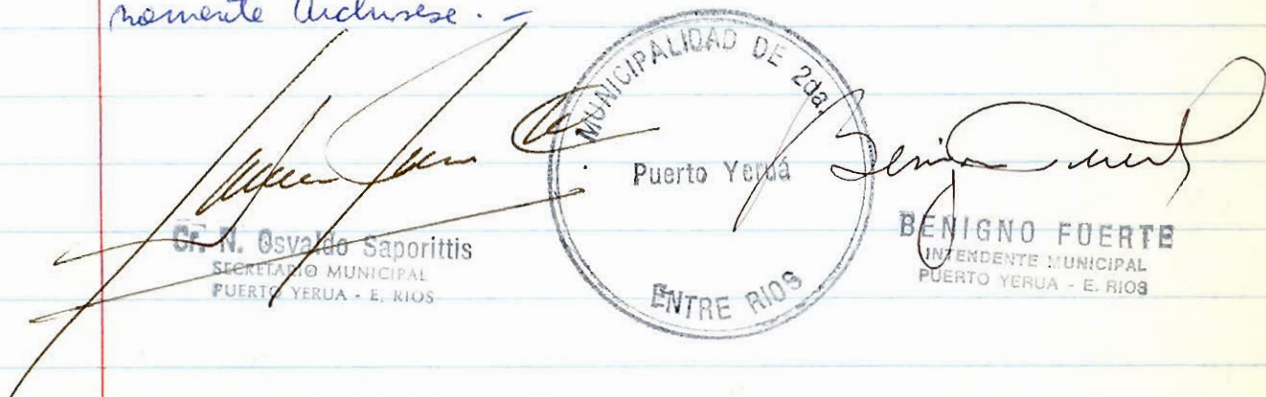 namente Archívese. -
MUNICIPALIDAD DE 2da.
Puerto Yeruá
ENTRE RIOS
Cr. N. Osvaldo Saporittis
SECRETARIO MUNICIPAL
PUERTO YERUA - E. RIOS
BENIGNO FUERTE
INTENDENTE MUNICIPAL
PUERTO YERUA - E. RIOS